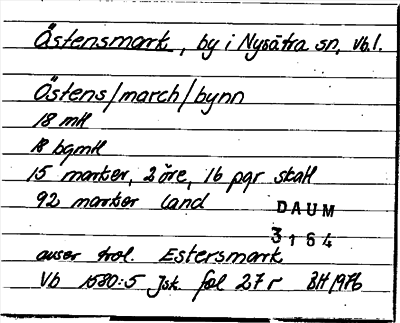 Östensmark, by i Nysätra sn, Vb.l.
Östens/march/bynn
18 mtl
18 bgmtl
15 marker, 2 öre, 16 pgr skatt
92 marker land
DAUM
3164
avser trol. Estersmark
Vb 1580:5 Jsk fol 27 r BH 1976